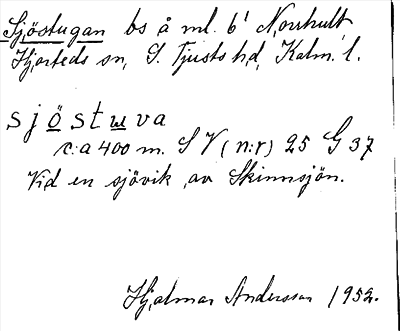 Sjöstugan bs å ml. 6¹ Norrhult
Hjorteds sn, S. Tjusts hd, Kalm. l.
sjöstuva
c:a 400 m. SV (n:r) 25 G 37
Vid en sjövik av Skinnsjön.
Hjalmar Andersson 1952.